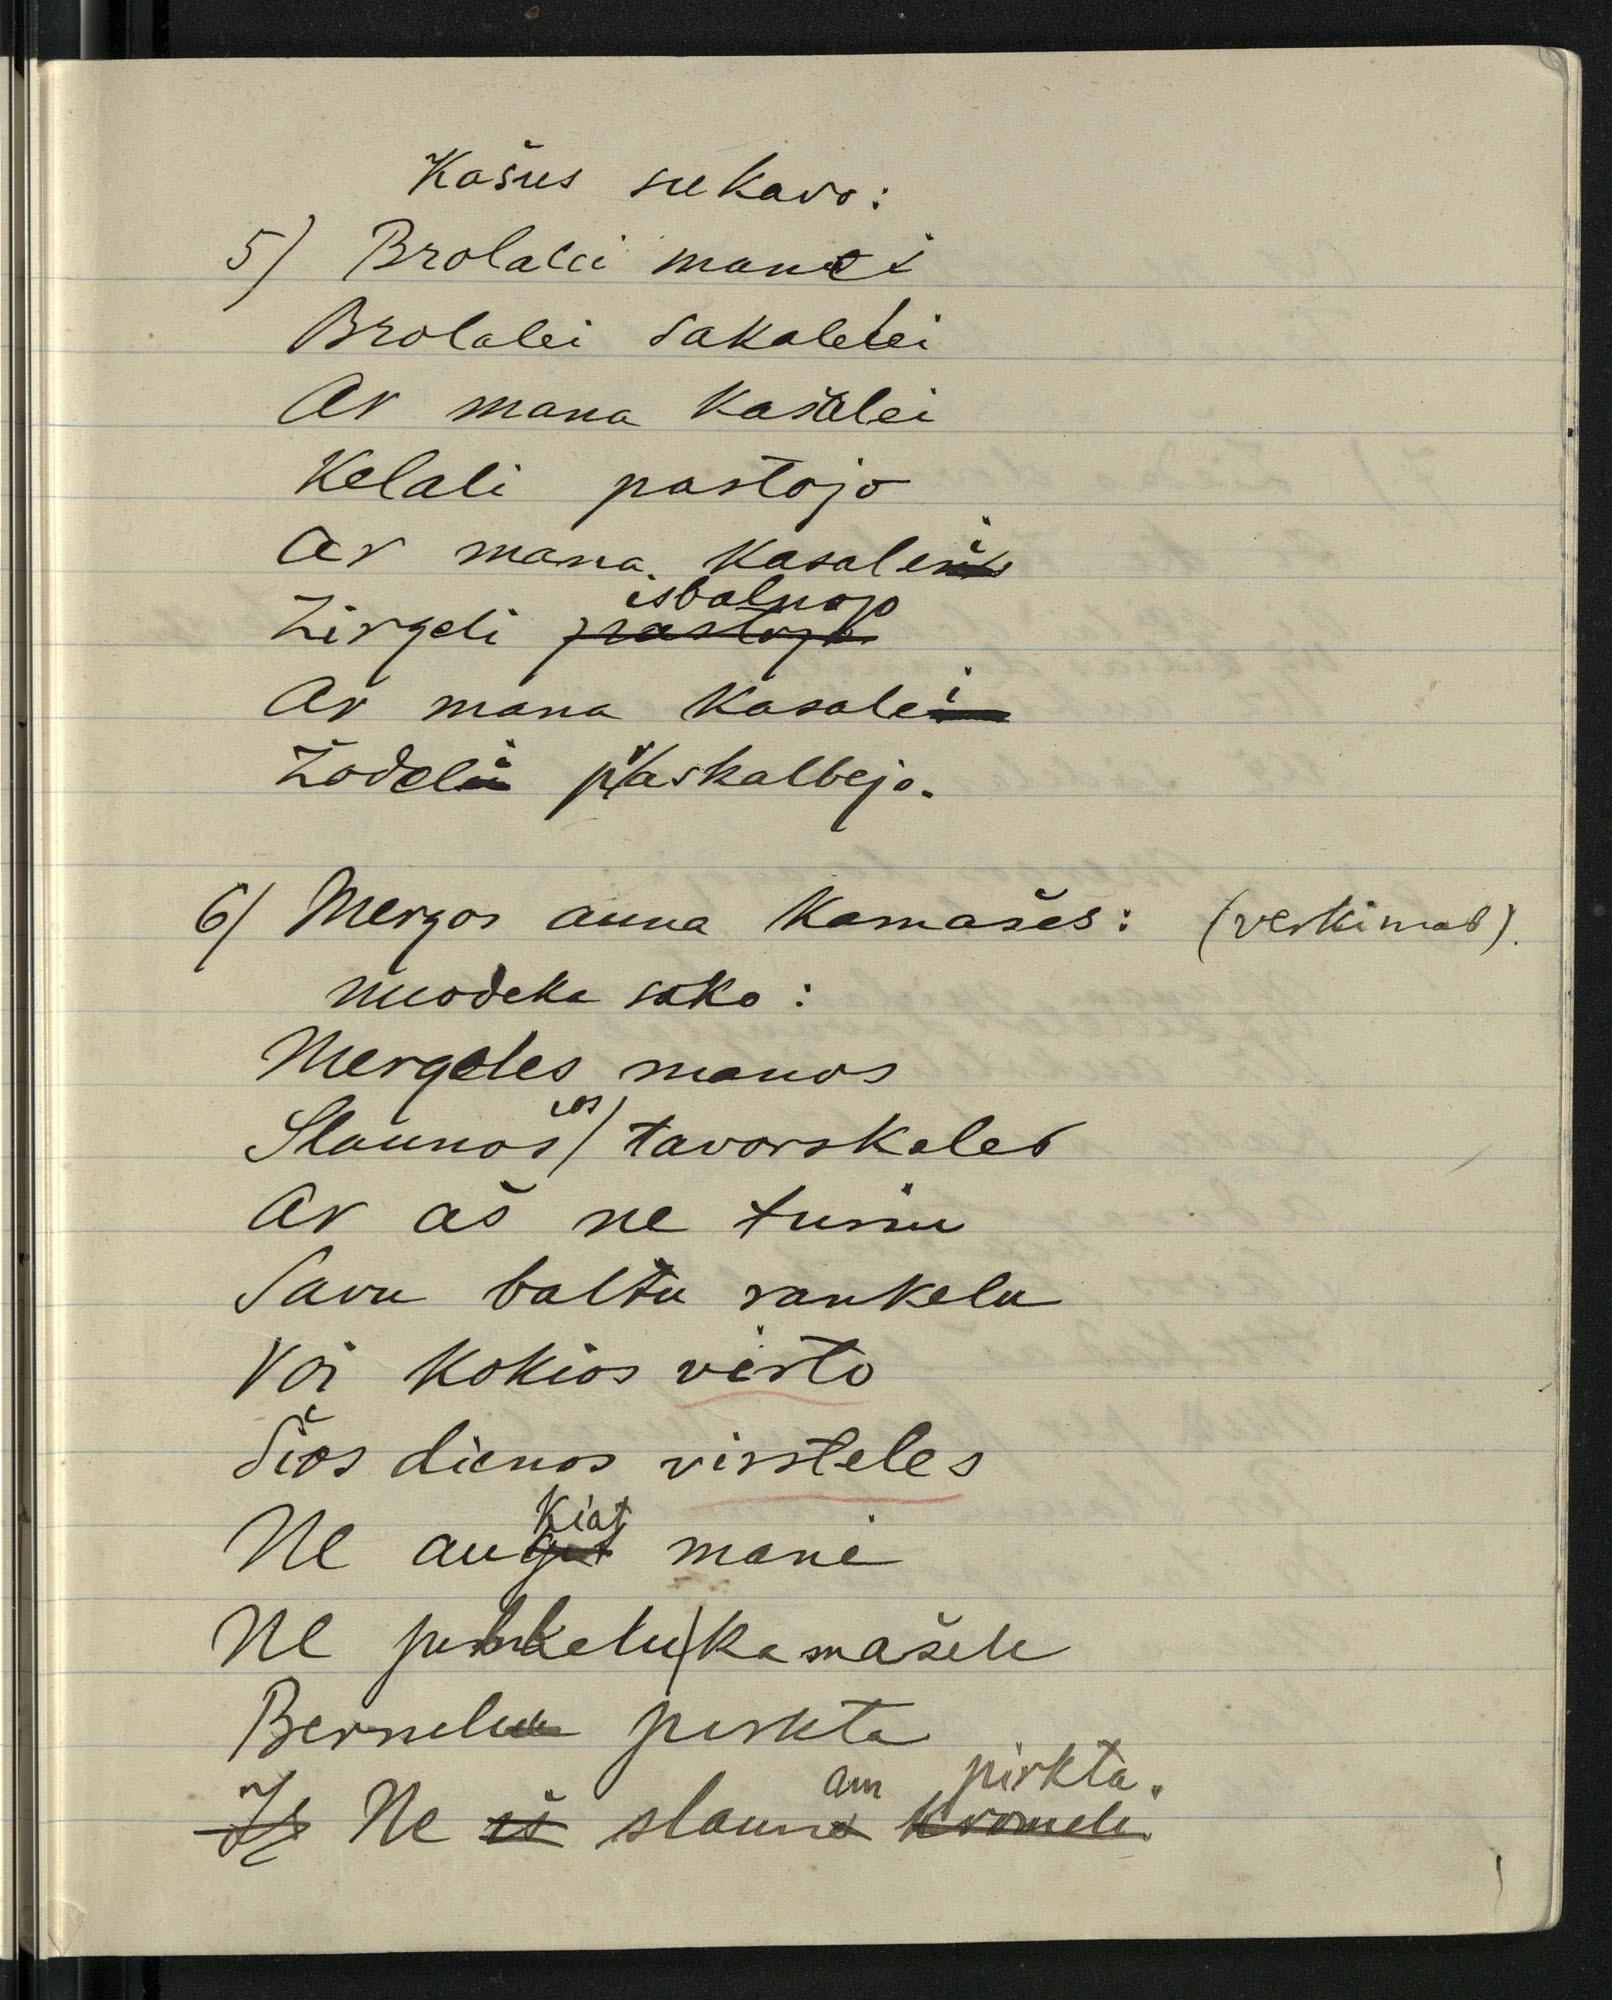 Kašus sukavo:
5) Brolalei manei
Brolalei sakalelei
Ar mana kasalei
Kelali pastojo
Ar mana kasalei
isbalnojo
Žirgeli pastojo
Ar mana kasalei
Žodeli praskalbejo.
6) Mergos auna kamašes: (verkimas).
nuodeka sako:
Mergeles manos
Slaunos/ios tavorskeles
Ar aš ne turiu
Savu baltu rankelu
Voi kokios virto
Šios dienos virsteles
Kiat
Ne augat mani
Ne kamašele
Bernelu pirkta
am pirkta.
Iš Ne iš slauna kromeli